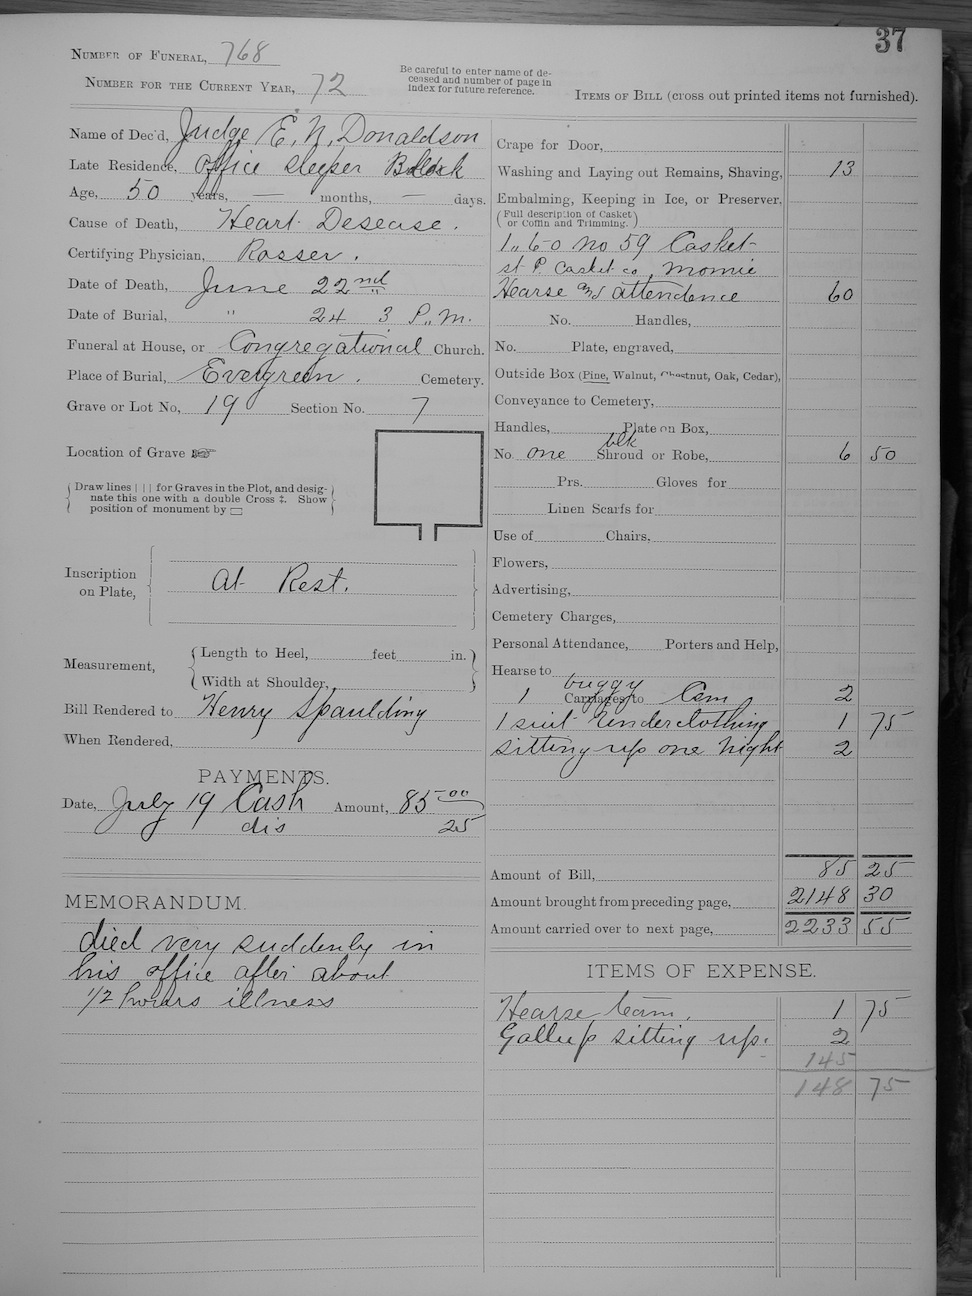 37
NUMBER OF FUNERAL, 768
NUMBER FOR THE CURRENT YEAR, 72
Be careful to enter name of de-
ceased and number of page in
index for future reference.
ITEMS OF BILL (cross out printed items not furnished).
Name of Dec'd, Judge E. N. Donaldson
Late Residence, Office Sleeper Block
Age, 50 years, — months, — days.
Cause of Death, Heart Desease.
Certifying Physician, Rosser.
Date of Death, June 22nd
Date of Burial, " 24 3 P.M.
Funeral at House, or Congregational Church.
Place of Burial, Evergreen. Cemetery.
Grave or Lot No, 19 Section No. 7
Location of Grave ☞
Draw lines | | | for Graves in the Plot, and desig-
nate this one with a double Cross ‡. Show
position of monument by ▭
Inscription
on Plate, At Rest.
Measurement,
Length to Heel, feet in.
Width at Shoulder,
Bill Rendered to Henry Spaulding
When Rendered,
PAYMENTS.
Date, July 19 Cash Amount, 85 00
dis 25
MEMORANDUM.
died very suddenly in
his office after about
1/2 hours illness
Crape for Door,
Washing and Laying out Remains, Shaving, 13
Embalming, Keeping in Ice, or Preserver,
(Full description of Casket
or Coffin and Trimming.)
1. 6-0 No 59 Casket
st P. Casket co,
Hearse and attendence 60
No. Handles,
No. Plate, engraved,
Outside Box (Pine, Walnut, Chestnut, Oak, Cedar),
Conveyance to Cemetery,
Handles, Plate on Box,
No. one blk Shroud or Robe, 6 50
Prs. Gloves for
Linen Scarfs for
Use of Chairs,
Flowers,
Advertising,
Cemetery Charges,
Personal Attendance, Porters and Help,
Hearse to
1 buggy Carriages to Cem 2
1 suit underclothing 1 75
sitting up one night 2
Amount of Bill, 85 25
Amount brought from preceding page, 2148 30
Amount carried over to next page, 2233 55
ITEMS OF EXPENSE.
Hearse team. 1 75
Gallup sitting up. 2
145
148 75